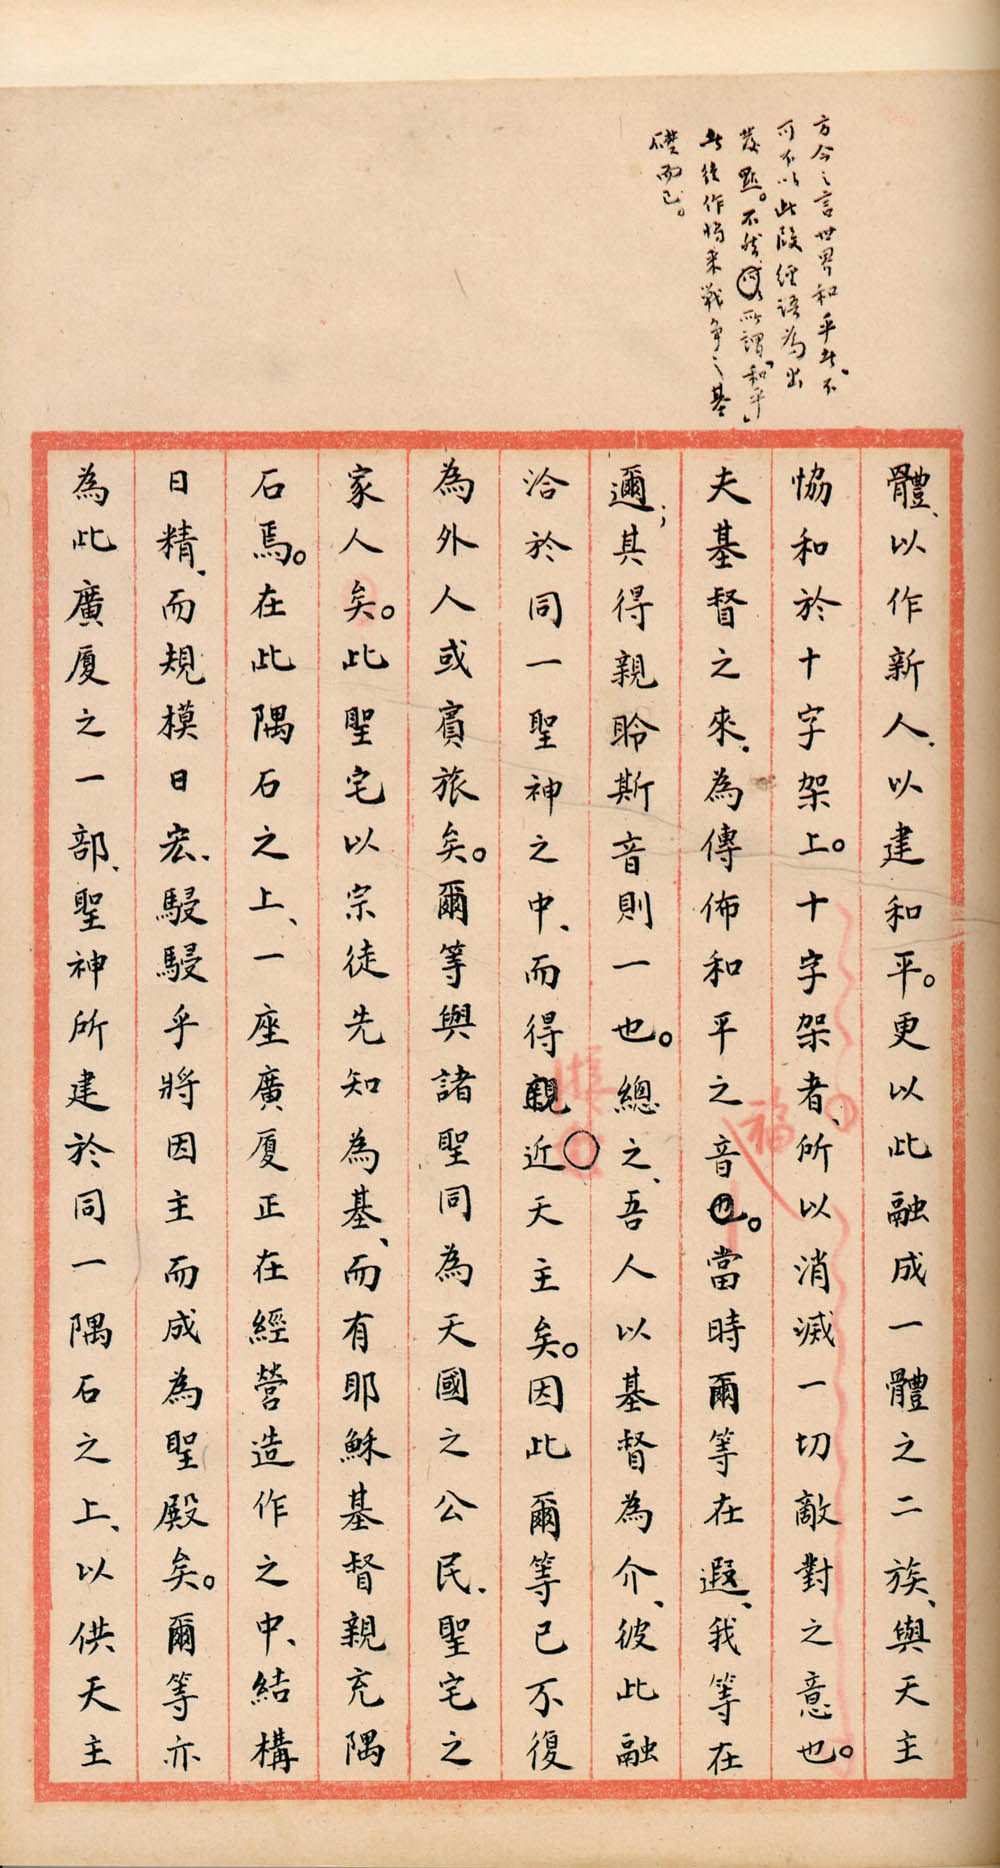 方今之言世界和平者。不
可不以此段經語為出
發點。不然所謂「和平」
者徒作將來戰爭之基
礎而已。
體、以作新人、以建和平。更以此融成一體之二族、與天主
恊和於十字架上。十字架者、所以消滅一切敵對之意也。
夫基督之來、為傳佈和平之音也。當時爾等在遐、我等在
邇；其得親聆斯音則一也。總之、吾人以基督為介、彼此融
洽於同一聖神之中、而得親近天主矣。因此爾等已不復
為外人或賓旅矣。爾等與諸聖同為天國之公民、聖宅之
家人矣。此聖宅以宗徒先知為基、而有耶穌基督親充隅
石焉。在此隅石之上、一座廣廈正在經營造作之中、結構
日精、而規模日宏、駸駸乎將因主而成為聖殿矣。爾等亦
為此廣廈之一部、聖神所建於同一隅石之上、以供天主
福